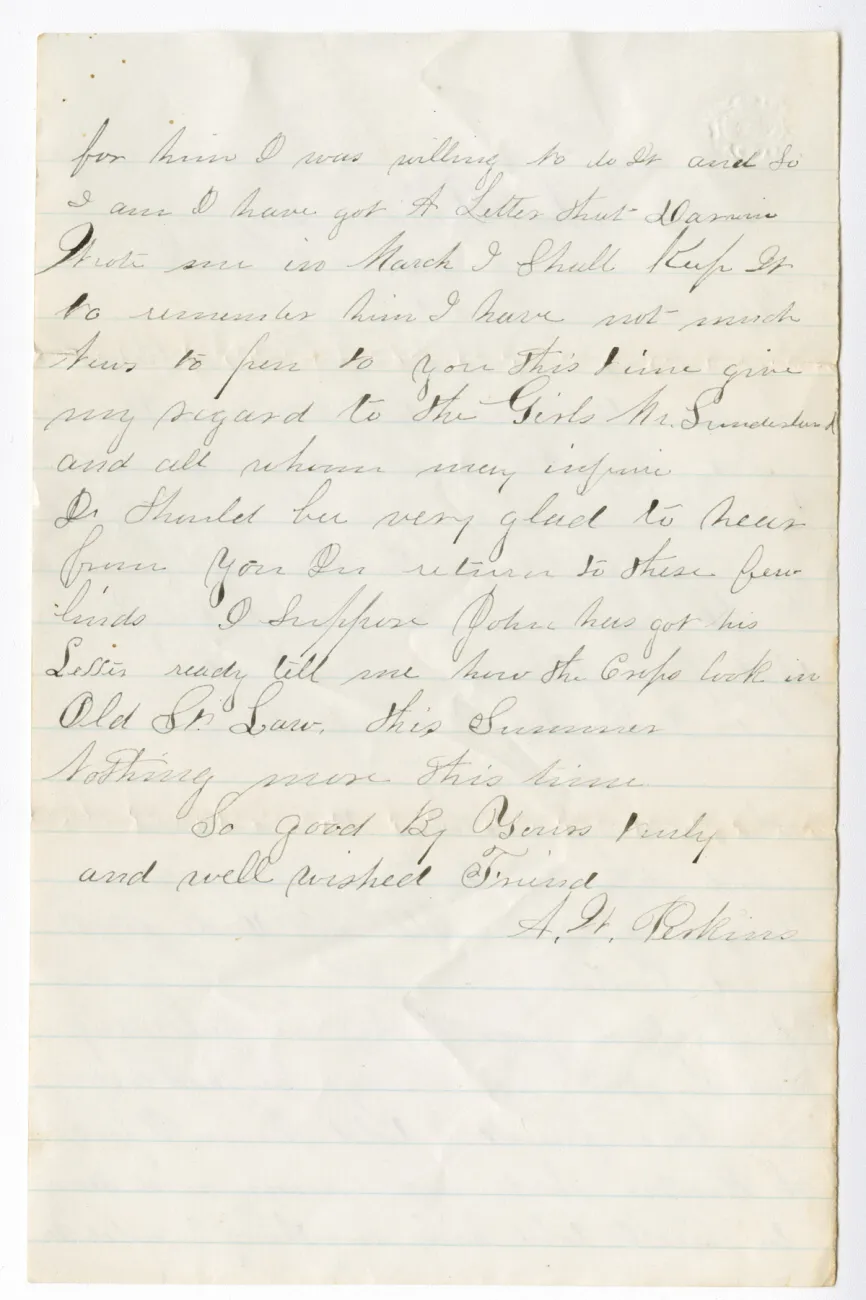 for him I was willing to do It and So
I am I have got A Letter that Darwin
Wrote me in March I Shall Keep It
to remember him I have not much
News to pen to you this time give
my regard to the Girls Mr. Sunderland
and all whom may inquire
I Should be very glad to hear
from You In return to these few
linds I Suppose John has got his
Letter ready tell me how the Crops look in
Old St. Law. this Summer
Nothing more this time
So good By Yours truly
and well wished Friend
A. W. Perkins